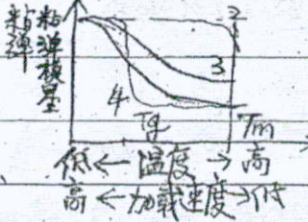 粘弹
粘弹模量
2
3
4
Tg
Tm
低 ← 温度 → 高
高 ← 加载速度 → 低